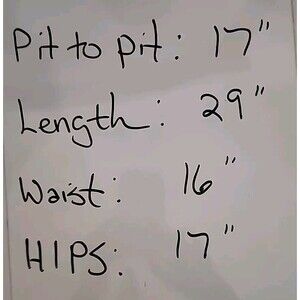 Pit to pit: 17"
Length: 29"
Waist: 16"
HIPS: 17"